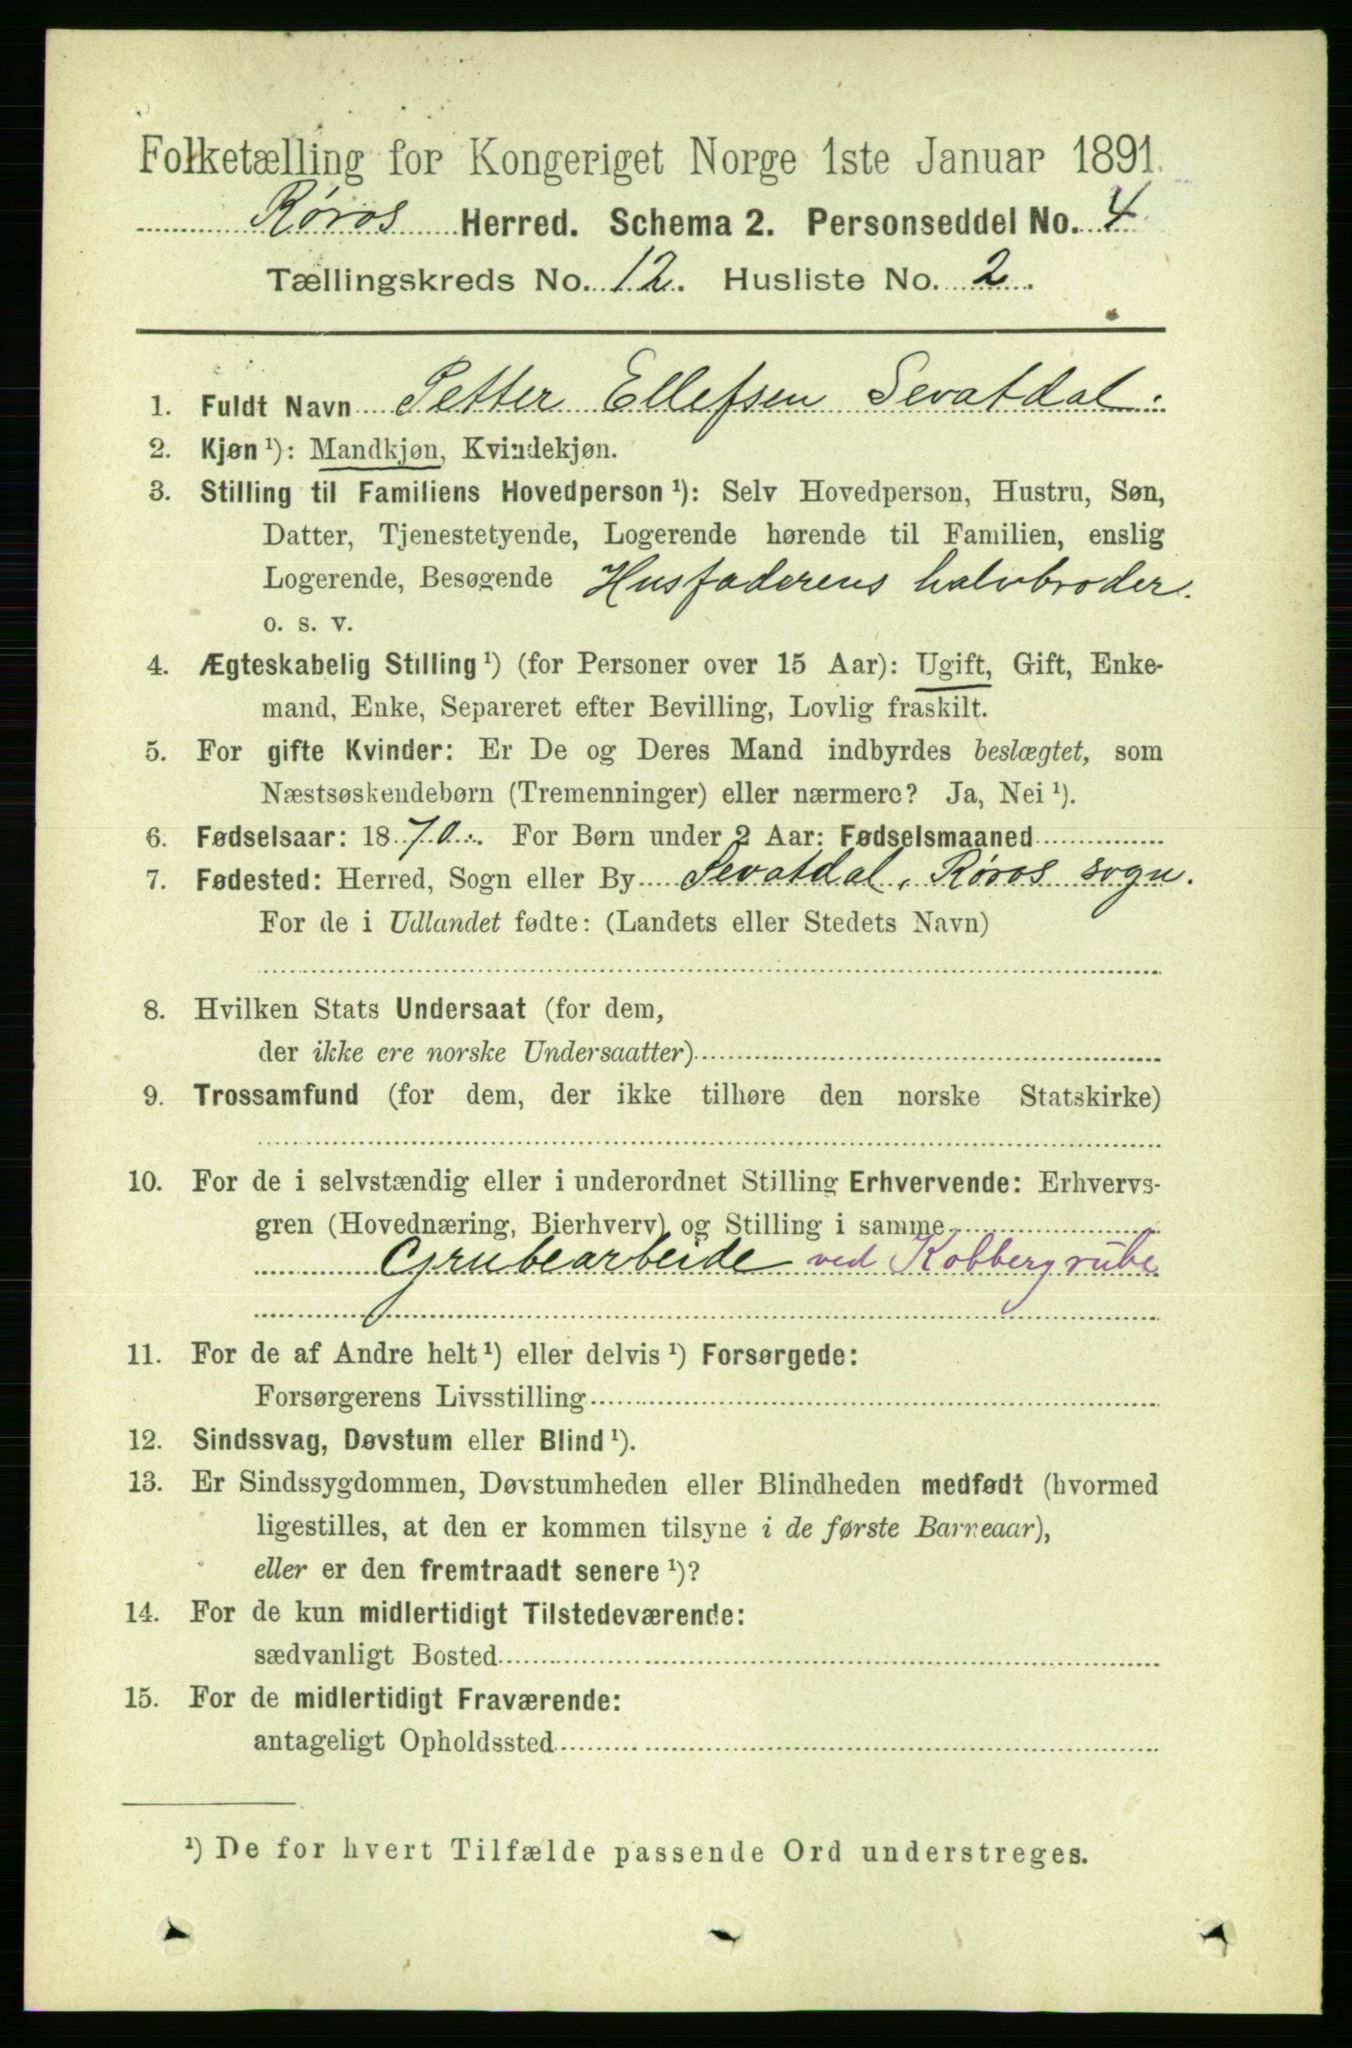 Folketælling for Kongeriget Norge 1ste Januar 1891.
Røros Herred. Schema 2. Personseddel No. 4
Tællingskreds No. 12. Husliste No. 2.
1. Fuldt Navn Petter Ellefsen Sevatdal.
2. Kjøn ¹): Mandkjøn, Kvindekjøn.
3. Stilling til Familiens Hovedperson ¹): Selv Hovedperson, Hustru, Søn,
Datter, Tjenestetyende, Logerende hørende til Familien, enslig
Logerende, Besøgende Husfaderens halvbroder.
o. s. v.
4. Ægteskabelig Stilling ¹) (for Personer over 15 Aar): Ugift, Gift, Enke-
mand, Enke, Separeret efter Bevilling, Lovlig fraskilt.
5. For gifte Kvinder: Er De og Deres Mand indbyrdes beslægtet, som
Næstsøskendebørn (Tremenninger) eller nærmere? Ja, Nei ¹).
6. Fødselsaar: 1870. For Børn under 2 Aar: Fødselsmaaned
7. Fødested: Herred, Sogn eller By Sevatdal, Røros sogn.
For de i Udlandet fødte: (Landets eller Stedets Navn)
8. Hvilken Stats Undersaat (for dem,
der ikke ere norske Undersaatter)
9. Trossamfund (for dem, der ikke tilhøre den norske Statskirke)
10. For de i selvstændig eller i underordnet Stilling Erhvervende: Erhvervs-
gren (Hovednæring, Bierhverv) og Stilling i samme
Grubearbeide ved Kobbergrube
11. For de af Andre helt ¹) eller delvis ¹) Forsørgede:
Forsørgerens Livsstilling
12. Sindssvag, Døvstum eller Blind ¹).
13. Er Sindssygdommen, Døvstumheden eller Blindheden medfødt (hvormed
ligestilles, at den er kommen tilsyne i de første Barneaar),
eller er den fremtraadt senere ¹)?
14. For de kun midlertidigt Tilstedeværende:
sædvanligt Bosted
15. For de midlertidigt Fraværende:
antageligt Opholdssted
¹) De for hvert Tilfælde passende Ord understreges.